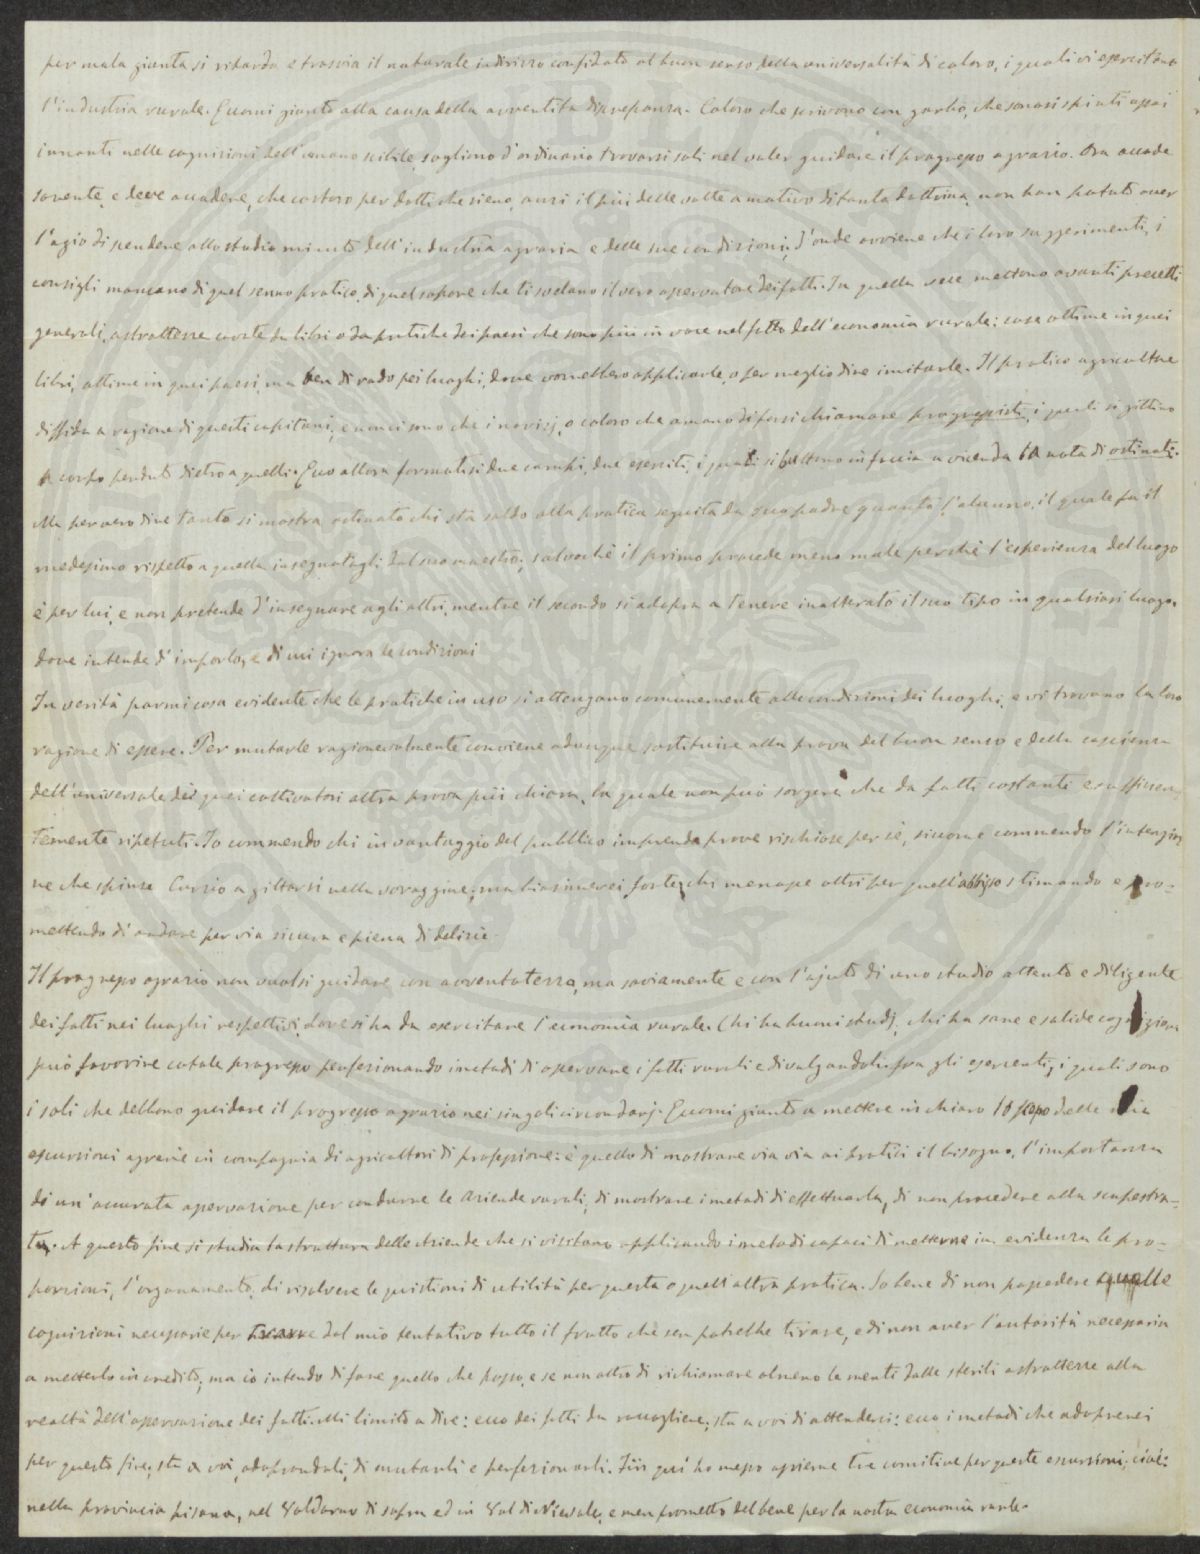 per mala giunta si ritarda e trasvia il naturale indirizzo confidato al buon senso della universalità di coloro, i quali vi esercitano
l'industria rurale. Eccomi giunto alla causa della avvertita discrepanza. Coloro che scrivono con garbo, che sonosi spinti assai
innanti nelle cognizioni dell'umano scibile, sogliono d'ordinario trovarsi soli nel voler guidare il progresso agrario. Ora accade
sovente, e deve accadere, che costoro per dotti che sieno, anzi il più delle volte a motivo di tanta dottrina, non han potuto aver
l'agio di scendere allo studio minuto dell'industria agraria e delle sue condizioni; d'onde avviene che i loro suggerimenti, i
consigli mancano di quel senno pratico, di quel sapore che ti svelano il vero osservatore dei fatti. In quella vece mettono avanti precetti
generali, astrattezze cavate da libri o da pratiche dei paesi che sono più in voce nel fatto dell'economia rurale; cose ottime in quei
libri, ottime in quei paesi, ma ben di rado pei luoghi, dove vorrebbero applicarle, o per meglio dire imitarle. Il pratico agricoltore
diffida a ragione di questi capitani, e non ci sono che i novizj, o coloro che amano di farsi chiamare progressisti, i quali si gittino
a corpo perduto dietro a quelli. Ecco allora formatisi due campi, due eserciti, i quali si buttono in faccia a vicenda la nota di ostinati.
Ma per vero dire tanto si mostra ostinato chi sta saldo alla pratica seguita da suo padre quanto l'alunno, il quale fa il
medesimo rispetto a quella insegnatagli dal suo maestro; salvochè il primo procede meno male perchè l'esperienza del luogo
è per lui, e non pretende d'insegnare agli altri, mentre il secondo si adopra a tenere inalterato il suo tipo in qualsiasi luogo,
dove intende d'imporlo, e di cui ignora le condizioni
In verità parmi cosa evidente che le pratiche in uso si attengano comunemente alle condizioni dei luoghi, e vi trovano la loro
ragione di essere. Per mutarle ragionevolmente conviene adunque sostituire alla prova del buon senso e della coscienza
dell'universale dei quei coltivatori altra prova più chiara, la quale non può sorgere che da fatti costanti e sufficien
temente ripetuti. Io commendo chi in vantaggio del pubblico imprenda prove rischiose per sè, siccome commendo l'intenzio
ne che spinse Curzio a gittarsi nella voraggine; ma biasimerei forte chi menasse altri per quell'abbisso stimando e pro=
mettendo di andare per via sicura e piena di delizie.
Il progresso agrario non vuolsi guidare con avventatezza, ma saviamente e con l'ajuto di uno studio attento e diligente
dei fatti nei luoghi respettivi, dove si ha da esercitare l'economia rurale. Chi ha buoni studj, chi ha sane e salide cognizioni
può favorire cotale progresso perfezionando i metodi di osservare i fatti rurali e divulgandoli fra gli esercenti, i quali sono
i soli che debbono guidare il progresso agrario nei singoli circondarj. Eccomi giunto a mettere in chiaro lo scopo delle mie
escursioni agrarie in compagnia di agricoltori di professione: è quello di mostrare via via ai pratici il bisogno, l'importanza
di un'accurata osservazione per condurre le aziende rurali; di mostrare i metodi di effettuarla, di non procedere alla scapestra=
ta. A questo fine si studia la struttura delle aziende che si visitano applicando i metodi capaci di metterne in evidenza le pro=
porzioni, l'organamento, di risolvere le quistioni di utilità per questa o quell'altra pratica. So bene di non possedere quelle
cognizioni necessarie per ticavare dal mio tentativo tutto il frutto che sen potrebbe tirare, e di non aver l'autorità necessaria
a metterlo in credito; ma io intendo di fare quello che posso, e se non altro di richiamare almeno le menti dalle sterili astrattezze alla
realtà dell'osservazione dei fatti. Mi limito a dire: ecco dei fatti da raccogliere; sta a voi di attenderci: ecco i metodi che adoprerei
per questo fine; sta a voi, adoprandoli, di mutarli e perfezionarli. Fin qui ho messo assieme tre comitive per queste escursioni, cioè:
nella provincia pisana, nel Valdarno di sopra ed in Val di Nievole, e men prometto del bene per la nostra economia rurale.